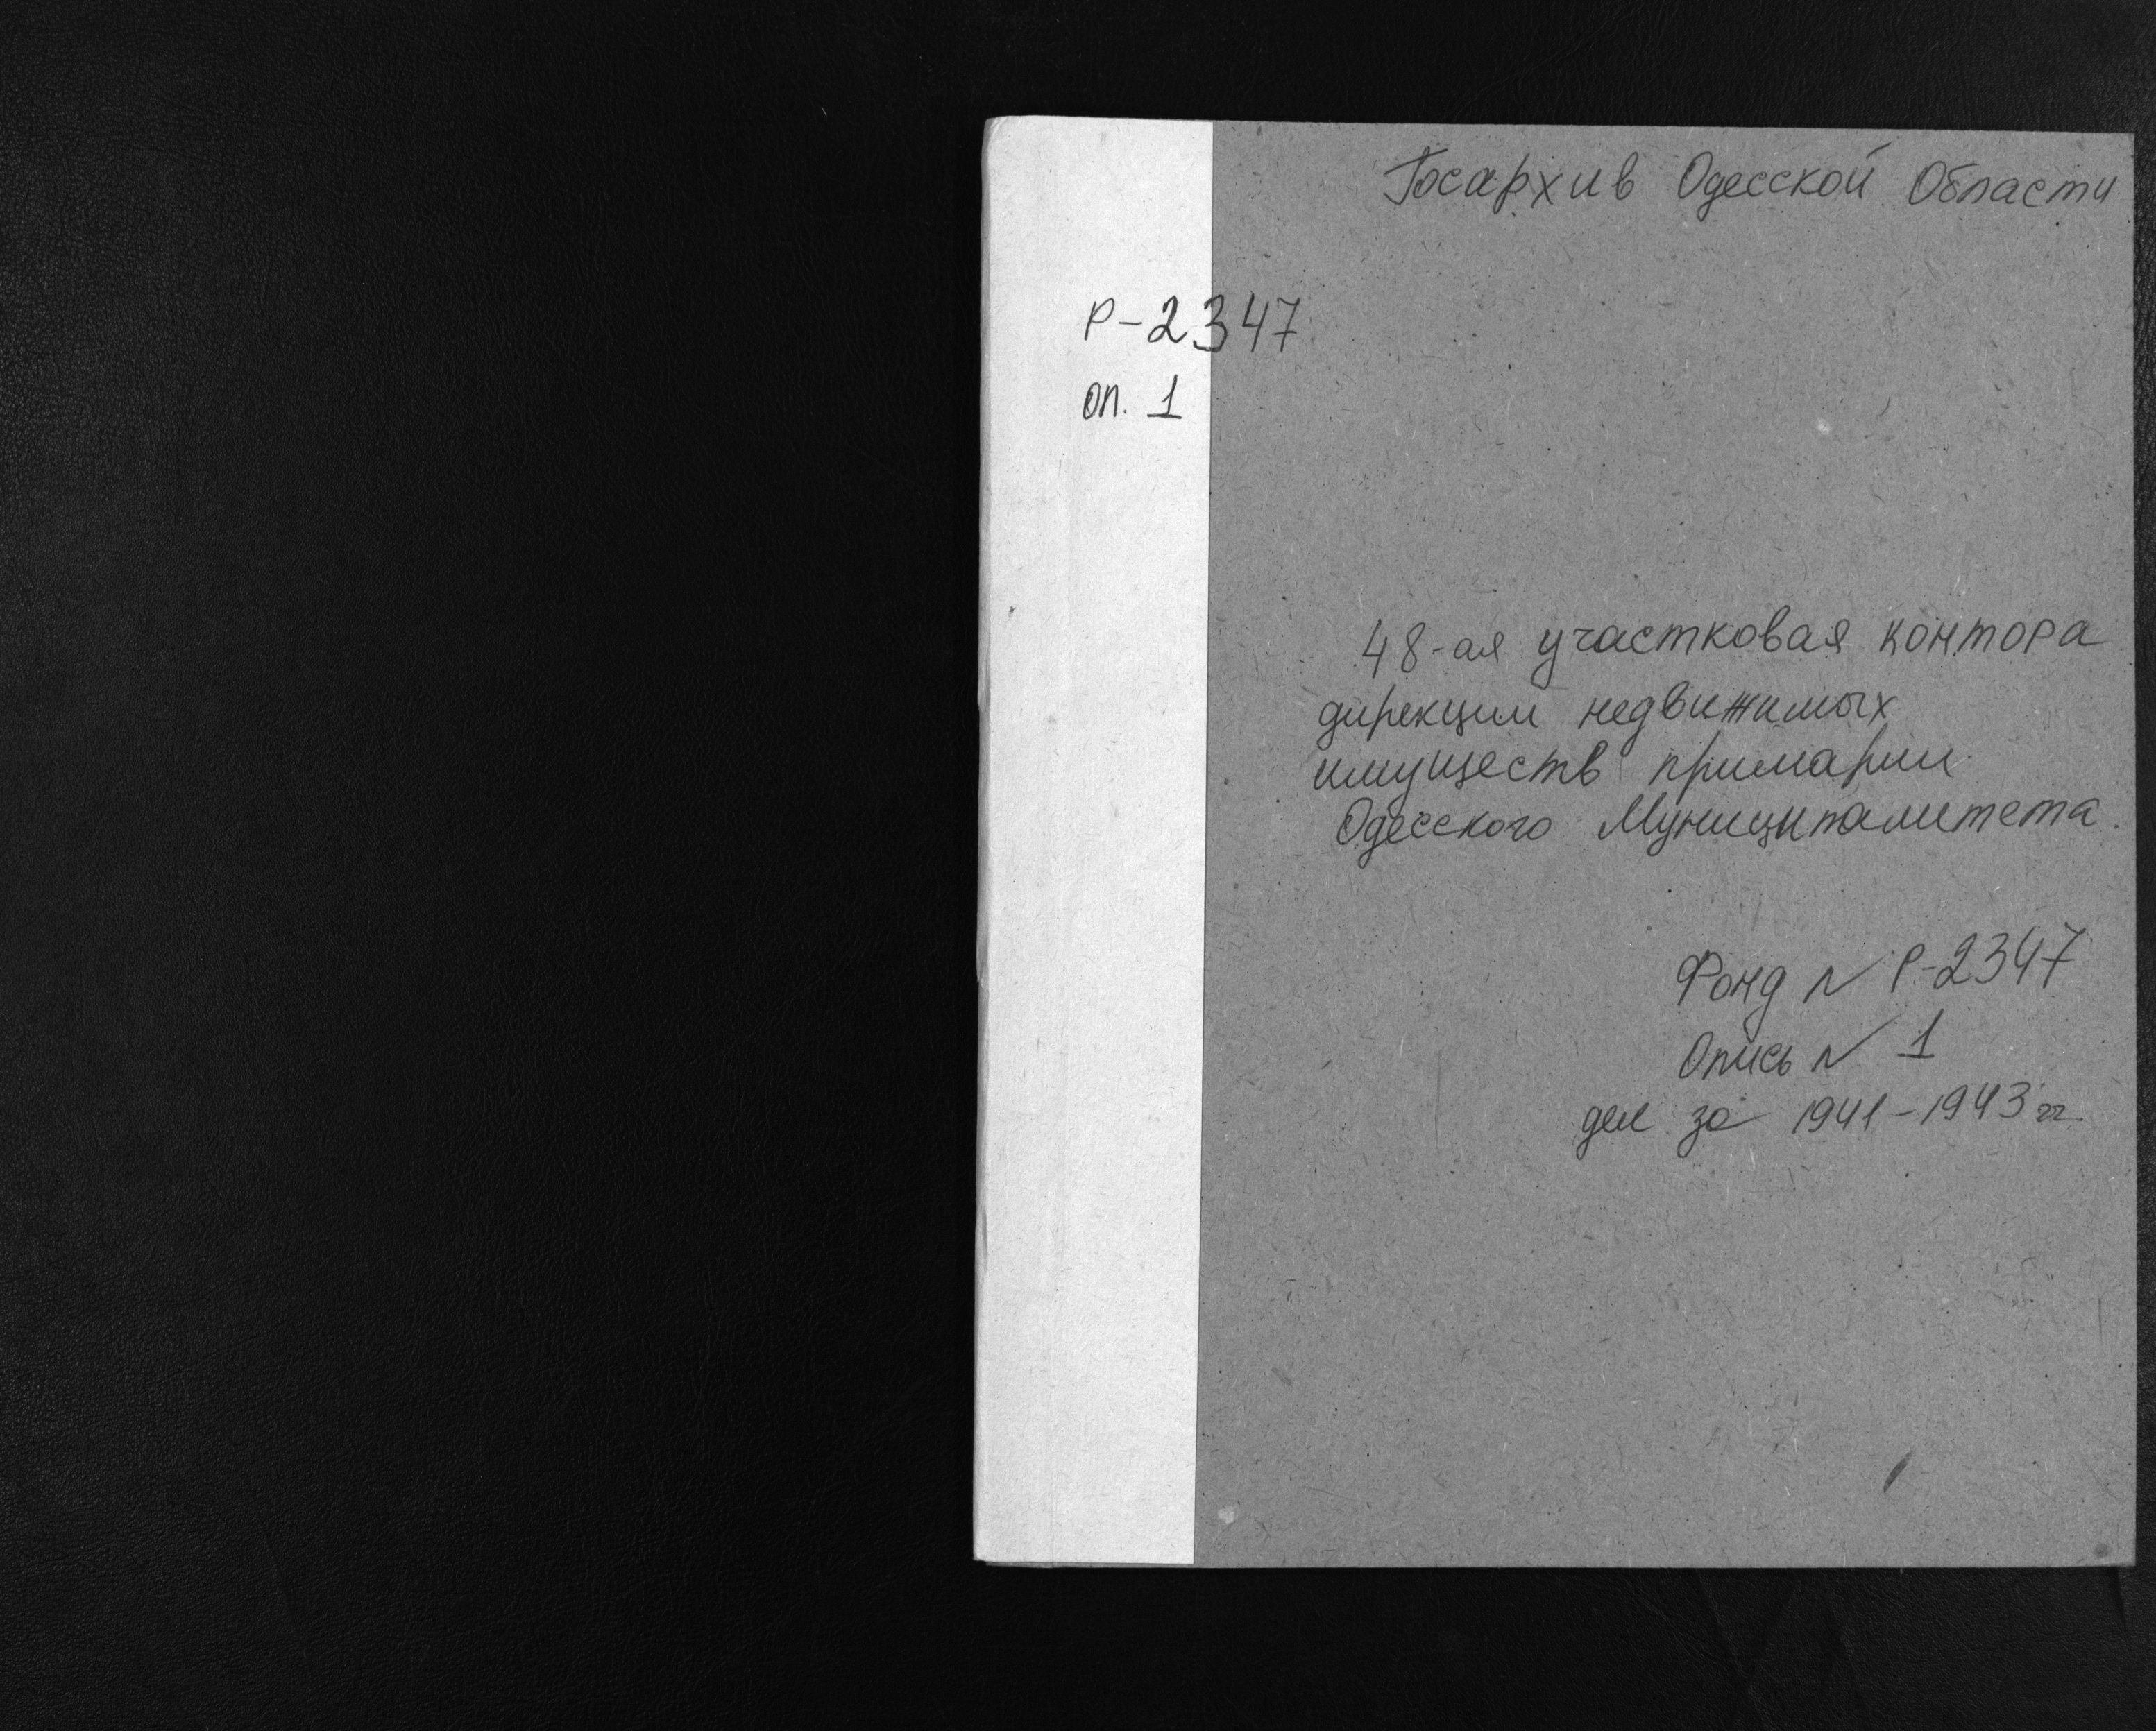 Госархив Одесской Области
Р-2347
оп. 1
48-ая участковая контора
дирекции недвижимых
имуществ примарии
Одесского Муниципалитета.
Фонд N Р-2347
Опись N 1
дел за 1941-1943 гг.